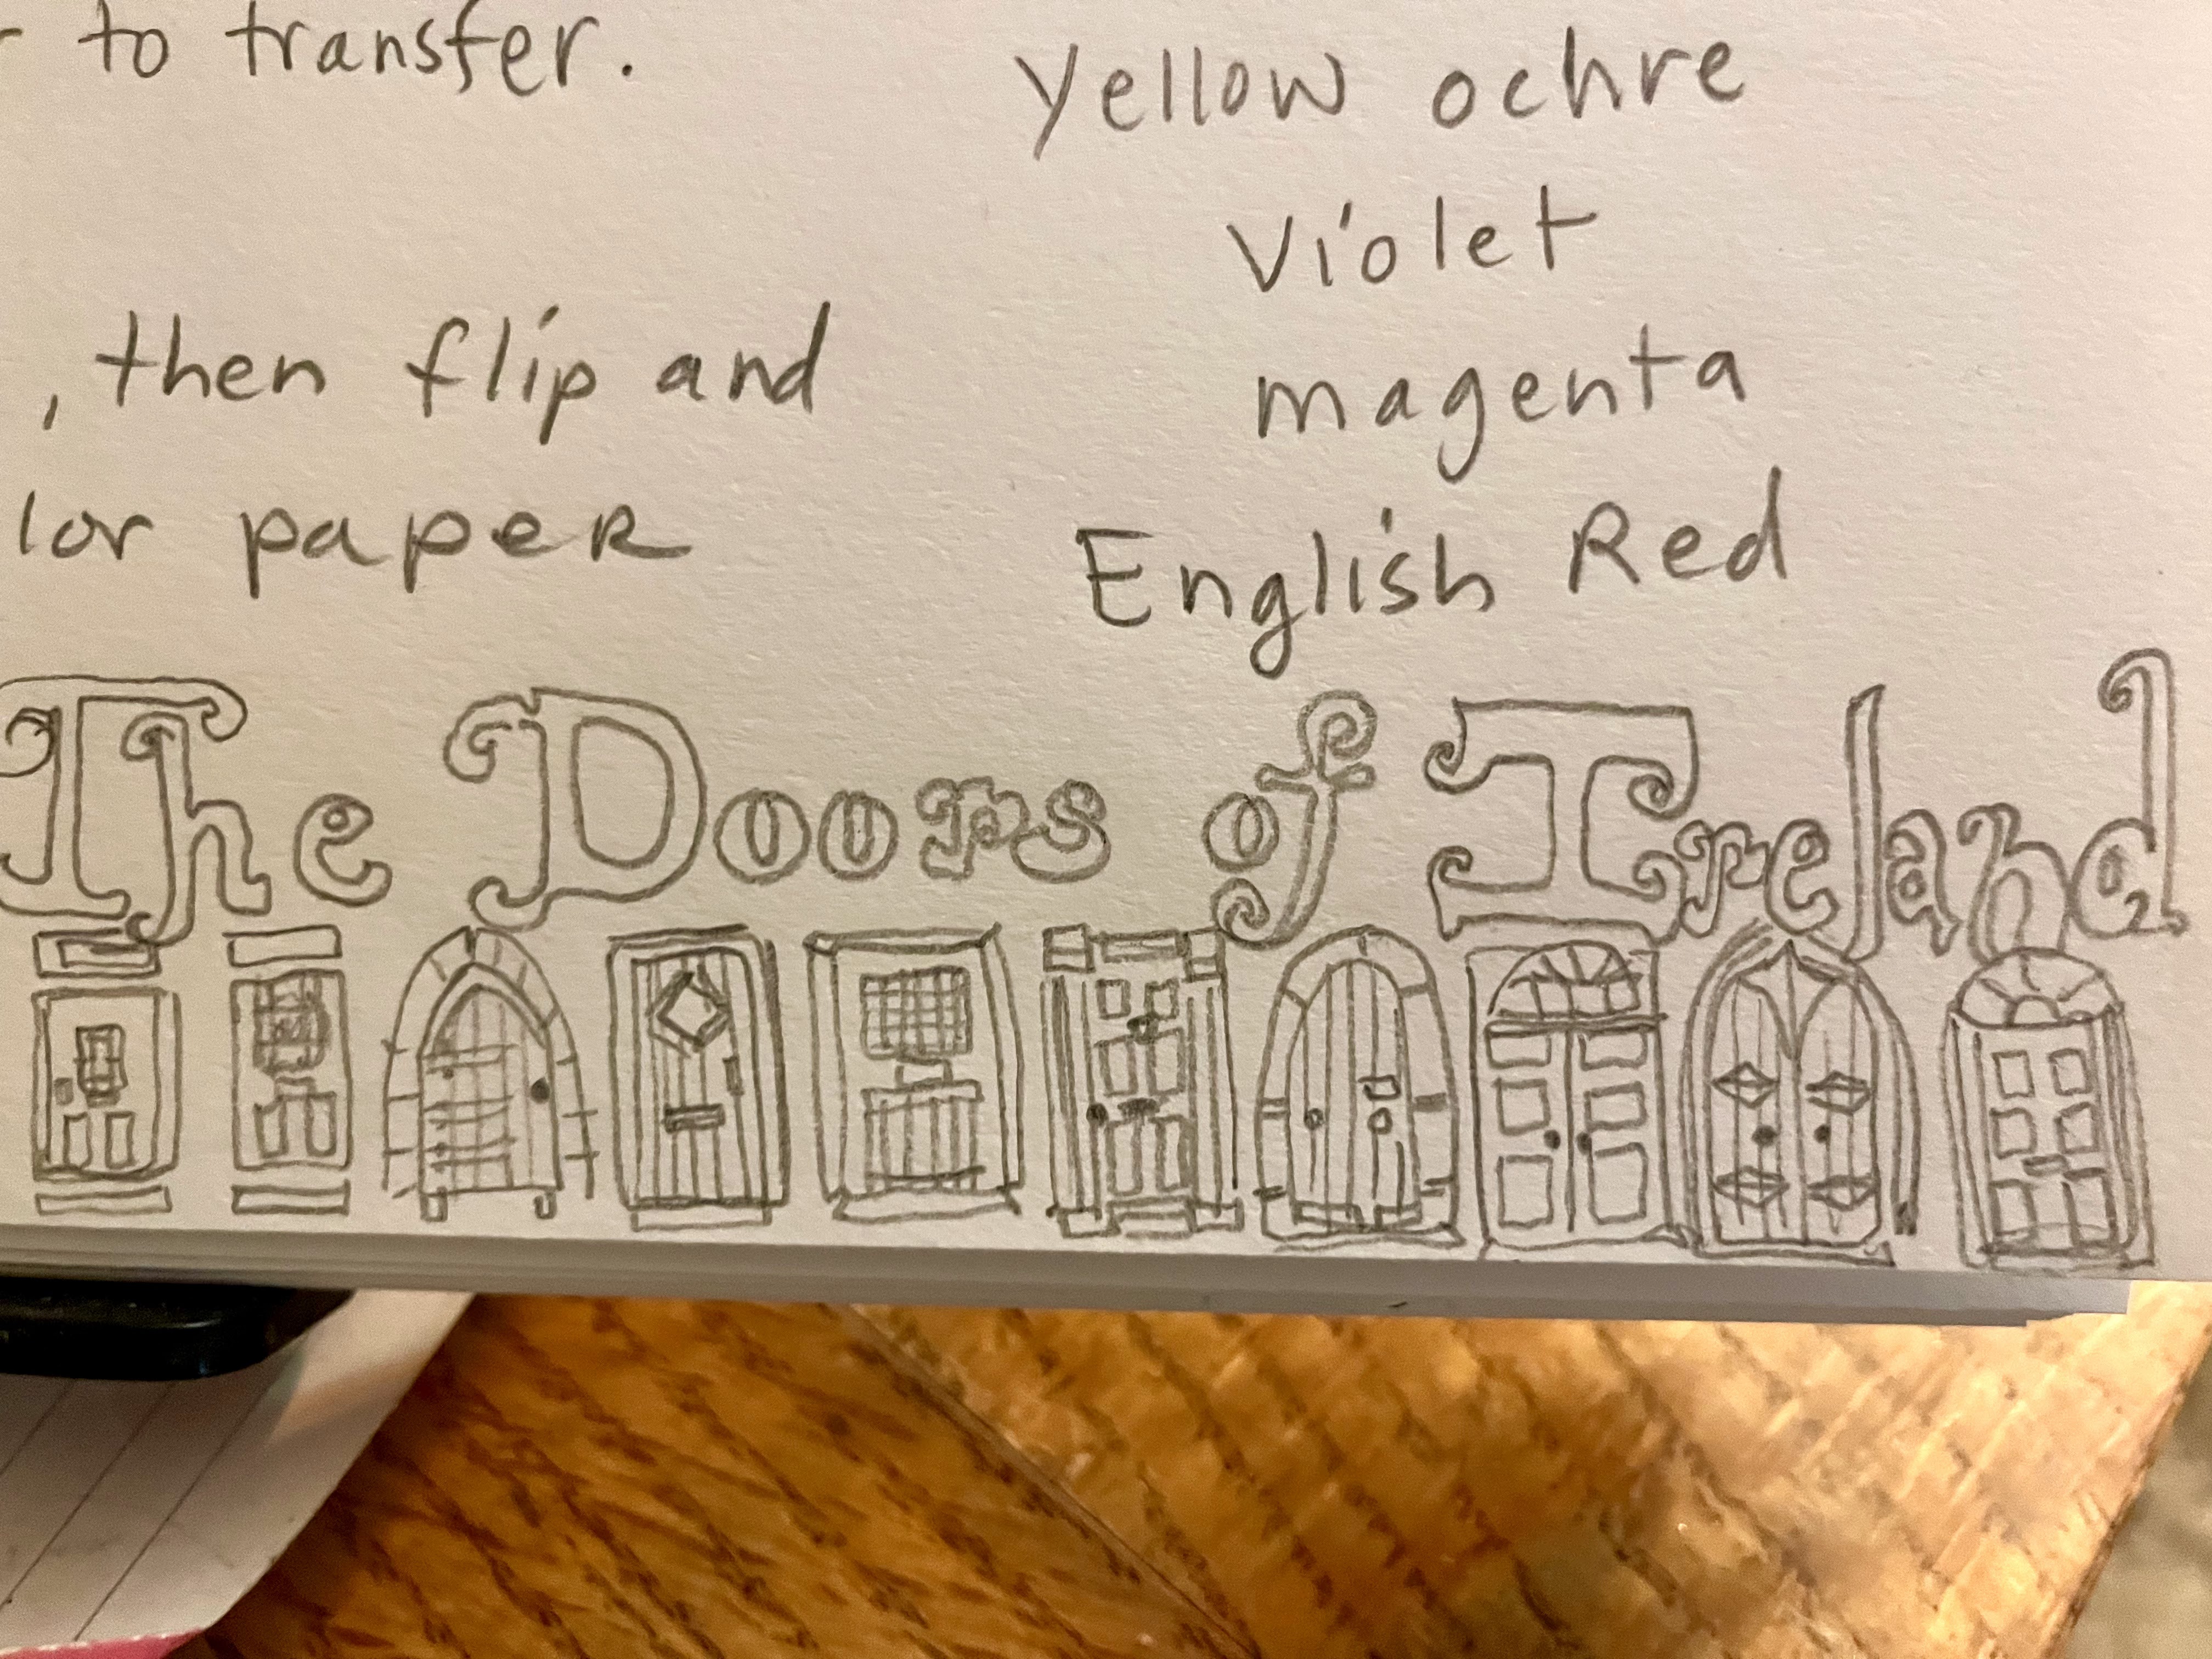 to transfer.
, then flip and
lor paper
Yellow ochre
Violet
magenta
English Red
The Doors of Ireland